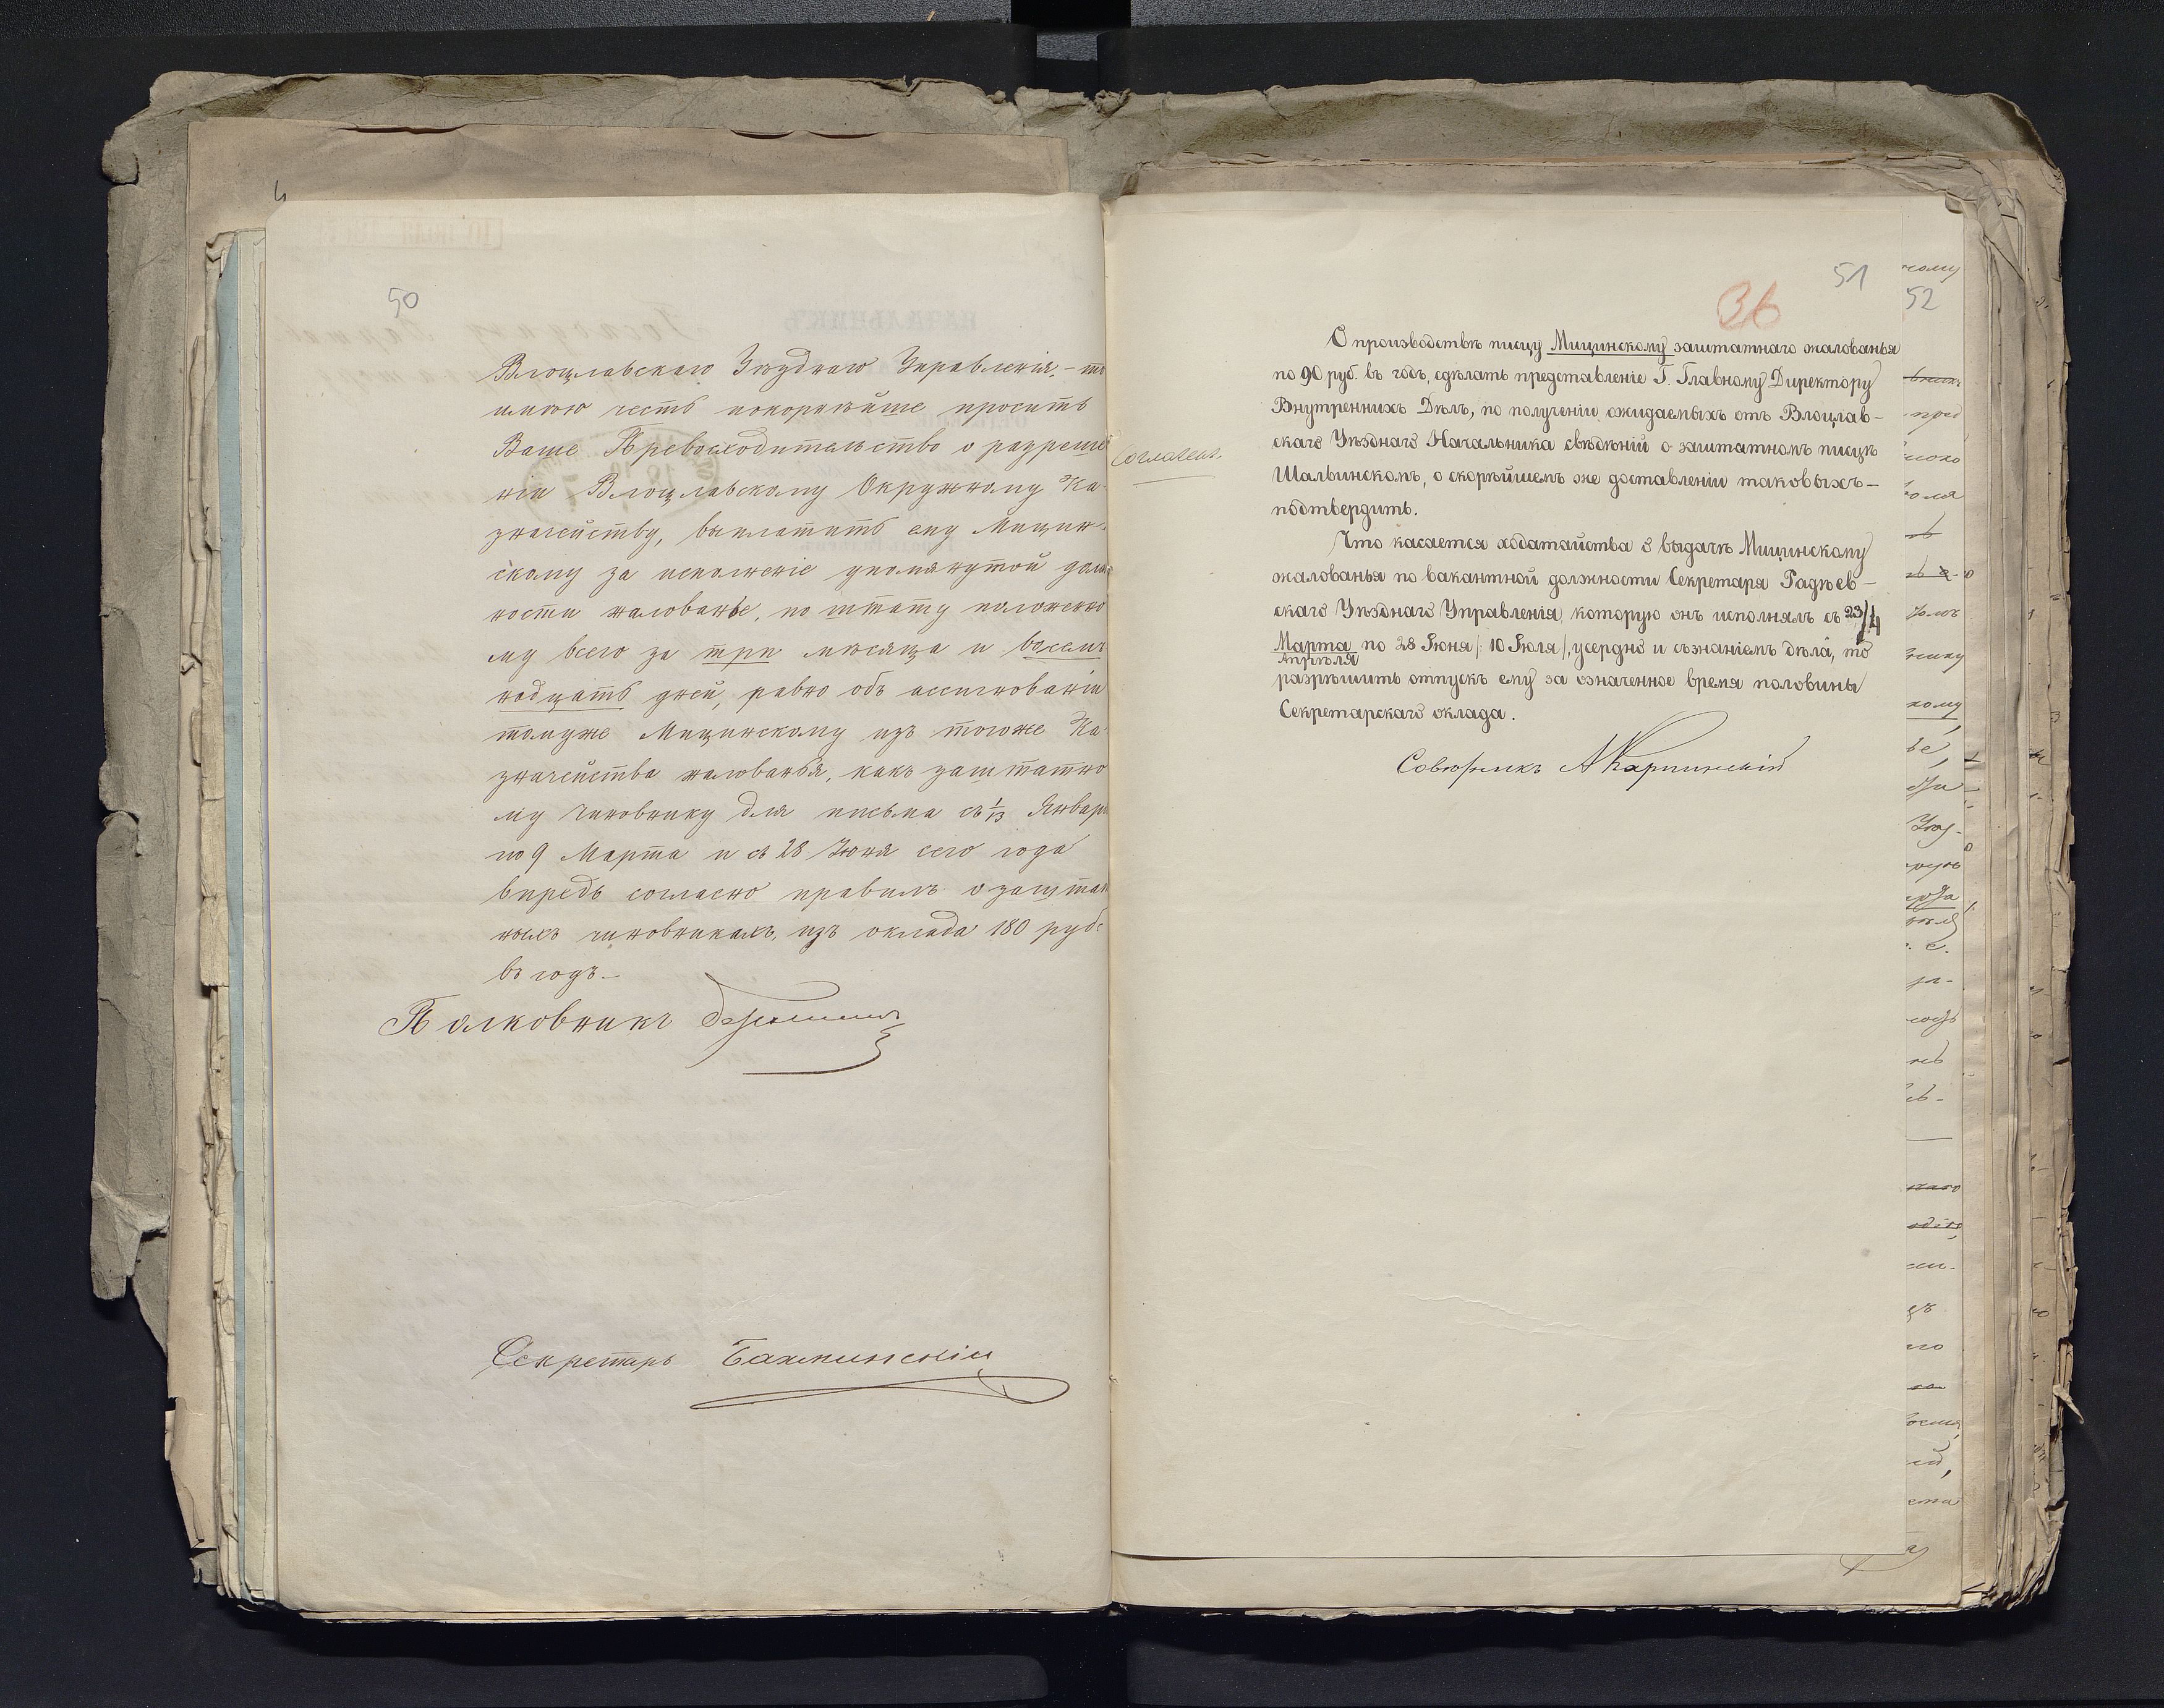 50
Влоцлавскаго Уѣзднаго Управленія, – то
имѣю честь покорнѣйше просить
Ваше Превосходительство о разреше
ніи Влоцлавскому Окружному Ка-
значейству, выплатить ему Мицин-
скому за исполненіе упомянутой долж
ности жалованье, по штату положенно
му всего за три мѣсяца и восем
надцать дней, равно объ ассигнованіи
томуже Мицинскому изъ тогоже Ка-
значейства жалованья, какъ заштатно
му чиновнику для письма съ 1/13 Январ
по 9 Марта и съ 28 Іюня сего года
впредь согласно правилъ о заштат
ныхъ чиновникахъ, изъ оклада 180 руб.
въ годъ. –
Полковникъ
Секретарь Бахминскій
51
36
52
Согласенъ.
О производствѣ писцу Мицинскому заштатнаго жалованья
по 90 руб. въ годъ, сдѣлать представленіе Г. Главному Директору
Внутреннихъ Дѣлъ, по полученіи ожидаемыхъ отъ Влоцлав-
скаго Уѣзднаго Начальника свѣдѣній о заштатномъ писцѣ
Шальинскомъ, о скорѣйшемъ же доставленіи таковыхъ –
подтвердить.
Что касается ходатайства о выдачѣ Мицинскому
жалованья по вакантной должности Секретаря Радѣев-
скаго Уѣзднаго Управленія, которую онъ исполнялъ съ 23/4
Марта по 28 Іюня /: 10 Іюля /, усердно и съ знаніемъ дѣла, то
Апрѣля
разрѣшить отпускъ ему за означенное время половины
Секретарскаго оклада.
Совѣтникъ АКарпинскій